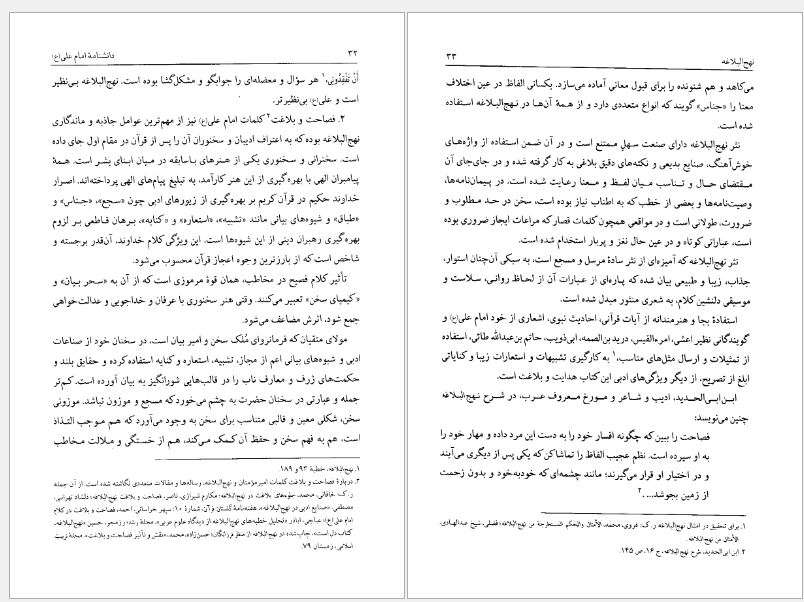 ۳۲ دانشنامهٔ امام علی(ع)
أَنْ تَفْقِدُونی،۱ هر سؤال و معضله‌ای را جوابگو و مشکل‌گشا بوده است. نهج‌البلاغه بی‌نظیر
است و علی(ع) بی‌نظیرتر.
۲. فصاحت و بلاغت۲ کلمات امام علی(ع) نیز از مهم‌ترین عوامل جاذبه و ماندگاری
نهج‌البلاغه بوده که به اعتراف ادیبان و سخنوران آن را پس از قرآن در مقام اول جای داده
است. سخنرانی و سخنوری یکی از هنرهای باسابقه در میان ابنای بشر است. همهٔ
پیامبران الهی با بهره‌گیری از این هنر کارآمد، به تبلیغ پیام‌های الهی پرداخته‌اند. اصرار
خداوند حکیم در قرآن کریم بر بهره‌گیری از زیورهای ادبی چون «سجع»، «جناس» و
«طباق» و شیوه‌های بیانی مانند «تشبیه»، «استعاره» و «کنایه»، برهان قاطعی بر لزوم
بهره‌گیری رهبران دینی از این شیوه‌ها است. این ویژگی کلام خداوند، آن‌قدر برجسته و
شاخص است که از بارزترین وجوه اعجاز قرآن محسوب می‌شود.
تأثیر کلام فصیح در مخاطب، همان قوهٔ مرموزی است که از آن به «سحر بیان» و
«کیمیای سخن» تعبیر می‌کنند. وقتی هنر سخنوری با عرفان و خداجویی و عدالت‌خواهی
جمع شود، اثرش مضاعف می‌شود.
مولای متقیان که فرمانروای مُلک سخن و امیر بیان است، در سخنان خود از صناعات
ادبی و شیوه‌های بیانی اعم از مجاز، تشبیه، استعاره و کنایه استفاده کرده و حقایق بلند و
حکمت‌های ژرف و معارف ناب را در قالب‌هایی شورانگیز به بیان آورده است. کم‌تر
جمله و عبارتی در سخنان حضرت به چشم می‌خورد که مسجع و موزون نباشد. موزونی
سخن، شکلی معین و قالبی متناسب برای سخن به وجود می‌آورد که هم موجب التذاذ
است، هم به فهم سخن و حفظ آن کمک می‌کند، هم از خستگی و ملالت مخاطب
۱. نهج‌البلاغه، خطبهٔ ۹۳ و ۱۸۹.
۲. دربارهٔ فصاحت و بلاغت کلمات امیرمؤمنان و نهج‌البلاغه، رساله‌ها و مقالات متعددی نگاشته شده است. از آن جمله
ر.ک: خاقانی، محمد، جلوه‌های بلاغت در نهج‌البلاغه؛ مکارم شیرازی، ناصر، فصاحت و بلاغت نهج‌البلاغه؛ دلشاد تهرانی،
مصطفی، «صنایع ادبی در نهج‌البلاغه»، هفته‌نامهٔ گلستان قرآن، شمارهٔ ۱۰؛ سپهر خراسانی، احمد، فصاحت و بلاغت در کلام
امام علی(ع)؛ عباچی، اباذر، «تحلیل خطبه‌های نهج‌البلاغه از دیدگاه علوم عربی»، مجلهٔ رشد؛ رزمجو، حسین، «نهج‌البلاغه،
کتاب دل است»، چاپ‌شده در نهج‌البلاغه از منظر فرزانگان؛ حسن‌زاده، محمد، «نقش و تأثیر فصاحت و بلاغت»، مجلهٔ تربیت
اسلامی، زمستان ۷۹.
نهج‌البلاغه ۳۳
می‌کاهد و هم شنونده را برای قبول معانی آماده می‌سازد. یکسانی الفاظ در عین اختلاف
معنا را «جناس» گویند که انواع متعددی دارد و از همهٔ آن‌ها در نهج‌البلاغه استفاده
شده است.
نثر نهج‌البلاغه دارای صنعت سهل ممتنع است و در آن ضمن استفاده از واژه‌های
خوش‌آهنگ، صنایع بدیعی و نکته‌های دقیق بلاغی به کار گرفته شده و در جای‌جای آن
مقتضای حال و تناسب میان لفظ و معنا رعایت شده است. در پیمان‌نامه‌ها،
وصیت‌نامه‌ها و بعضی از خطب که به اطناب نیاز بوده است، سخن در حد مطلوب و
ضرورت، طولانی است و در مواقعی همچون کلمات قصار که مراعات ایجاز ضروری بوده
است، عباراتی کوتاه و در عین حال نغز و پربار استخدام شده است.
نثر نهج‌البلاغه که آمیزه‌ای از نثر سادهٔ مرسل و مسجع است، به سبکی آن‌چنان استوار،
جذاب، زیبا و طبیعی بیان شده که پاره‌ای از عبارات آن از لحاظ روانی، سلاست و
موسیقی دلنشین کلام، به شعری منثور مبدل شده است.
استفادهٔ بجا و هنرمندانه از آیات قرآنی، احادیث نبوی، اشعاری از خود امام علی(ع) و
گویندگانی نظیر اعشی، امرءالقیس، درید بن‌الصمه، ابی‌ذویب، حاتم بن‌عبدالله طائی، استفاده
از تمثیلات و ارسال مثل‌های مناسب،۱ به کارگیری تشبیهات و استعارات زیبا و کنایاتی
ابلغ از تصریح، از دیگر ویژگی‌های ادبی این کتاب هدایت و بلاغت است.
ابن‌ابی‌الحدید، ادیب و شاعر و مورخ معروف عرب، در شرح نهج‌البلاغه
چنین می‌نویسد:
فصاحت را ببین که چگونه افسار خود را به دست این مرد داده و مهار خود را
به او سپرده است. نظم عجیب الفاظ را تماشا کن که یکی پس از دیگری می‌آیند
و در اختیار او قرار می‌گیرند؛ مانند چشمه‌ای که خودبه‌خود و بدون زحمت
از زمین بجوشد....۲
۱. برای تحقیق در امثال نهج‌البلاغه ر.ک: غروی، محمد، الأمثال والحکم المستخرجة من نهج‌البلاغه؛ فضلی، شیخ عبدالهادی،
الأمثال من نهج‌البلاغه.
۲. ابن ابی‌الحدید، شرح نهج‌البلاغه، ج ۱۶، ص ۱۴۵.